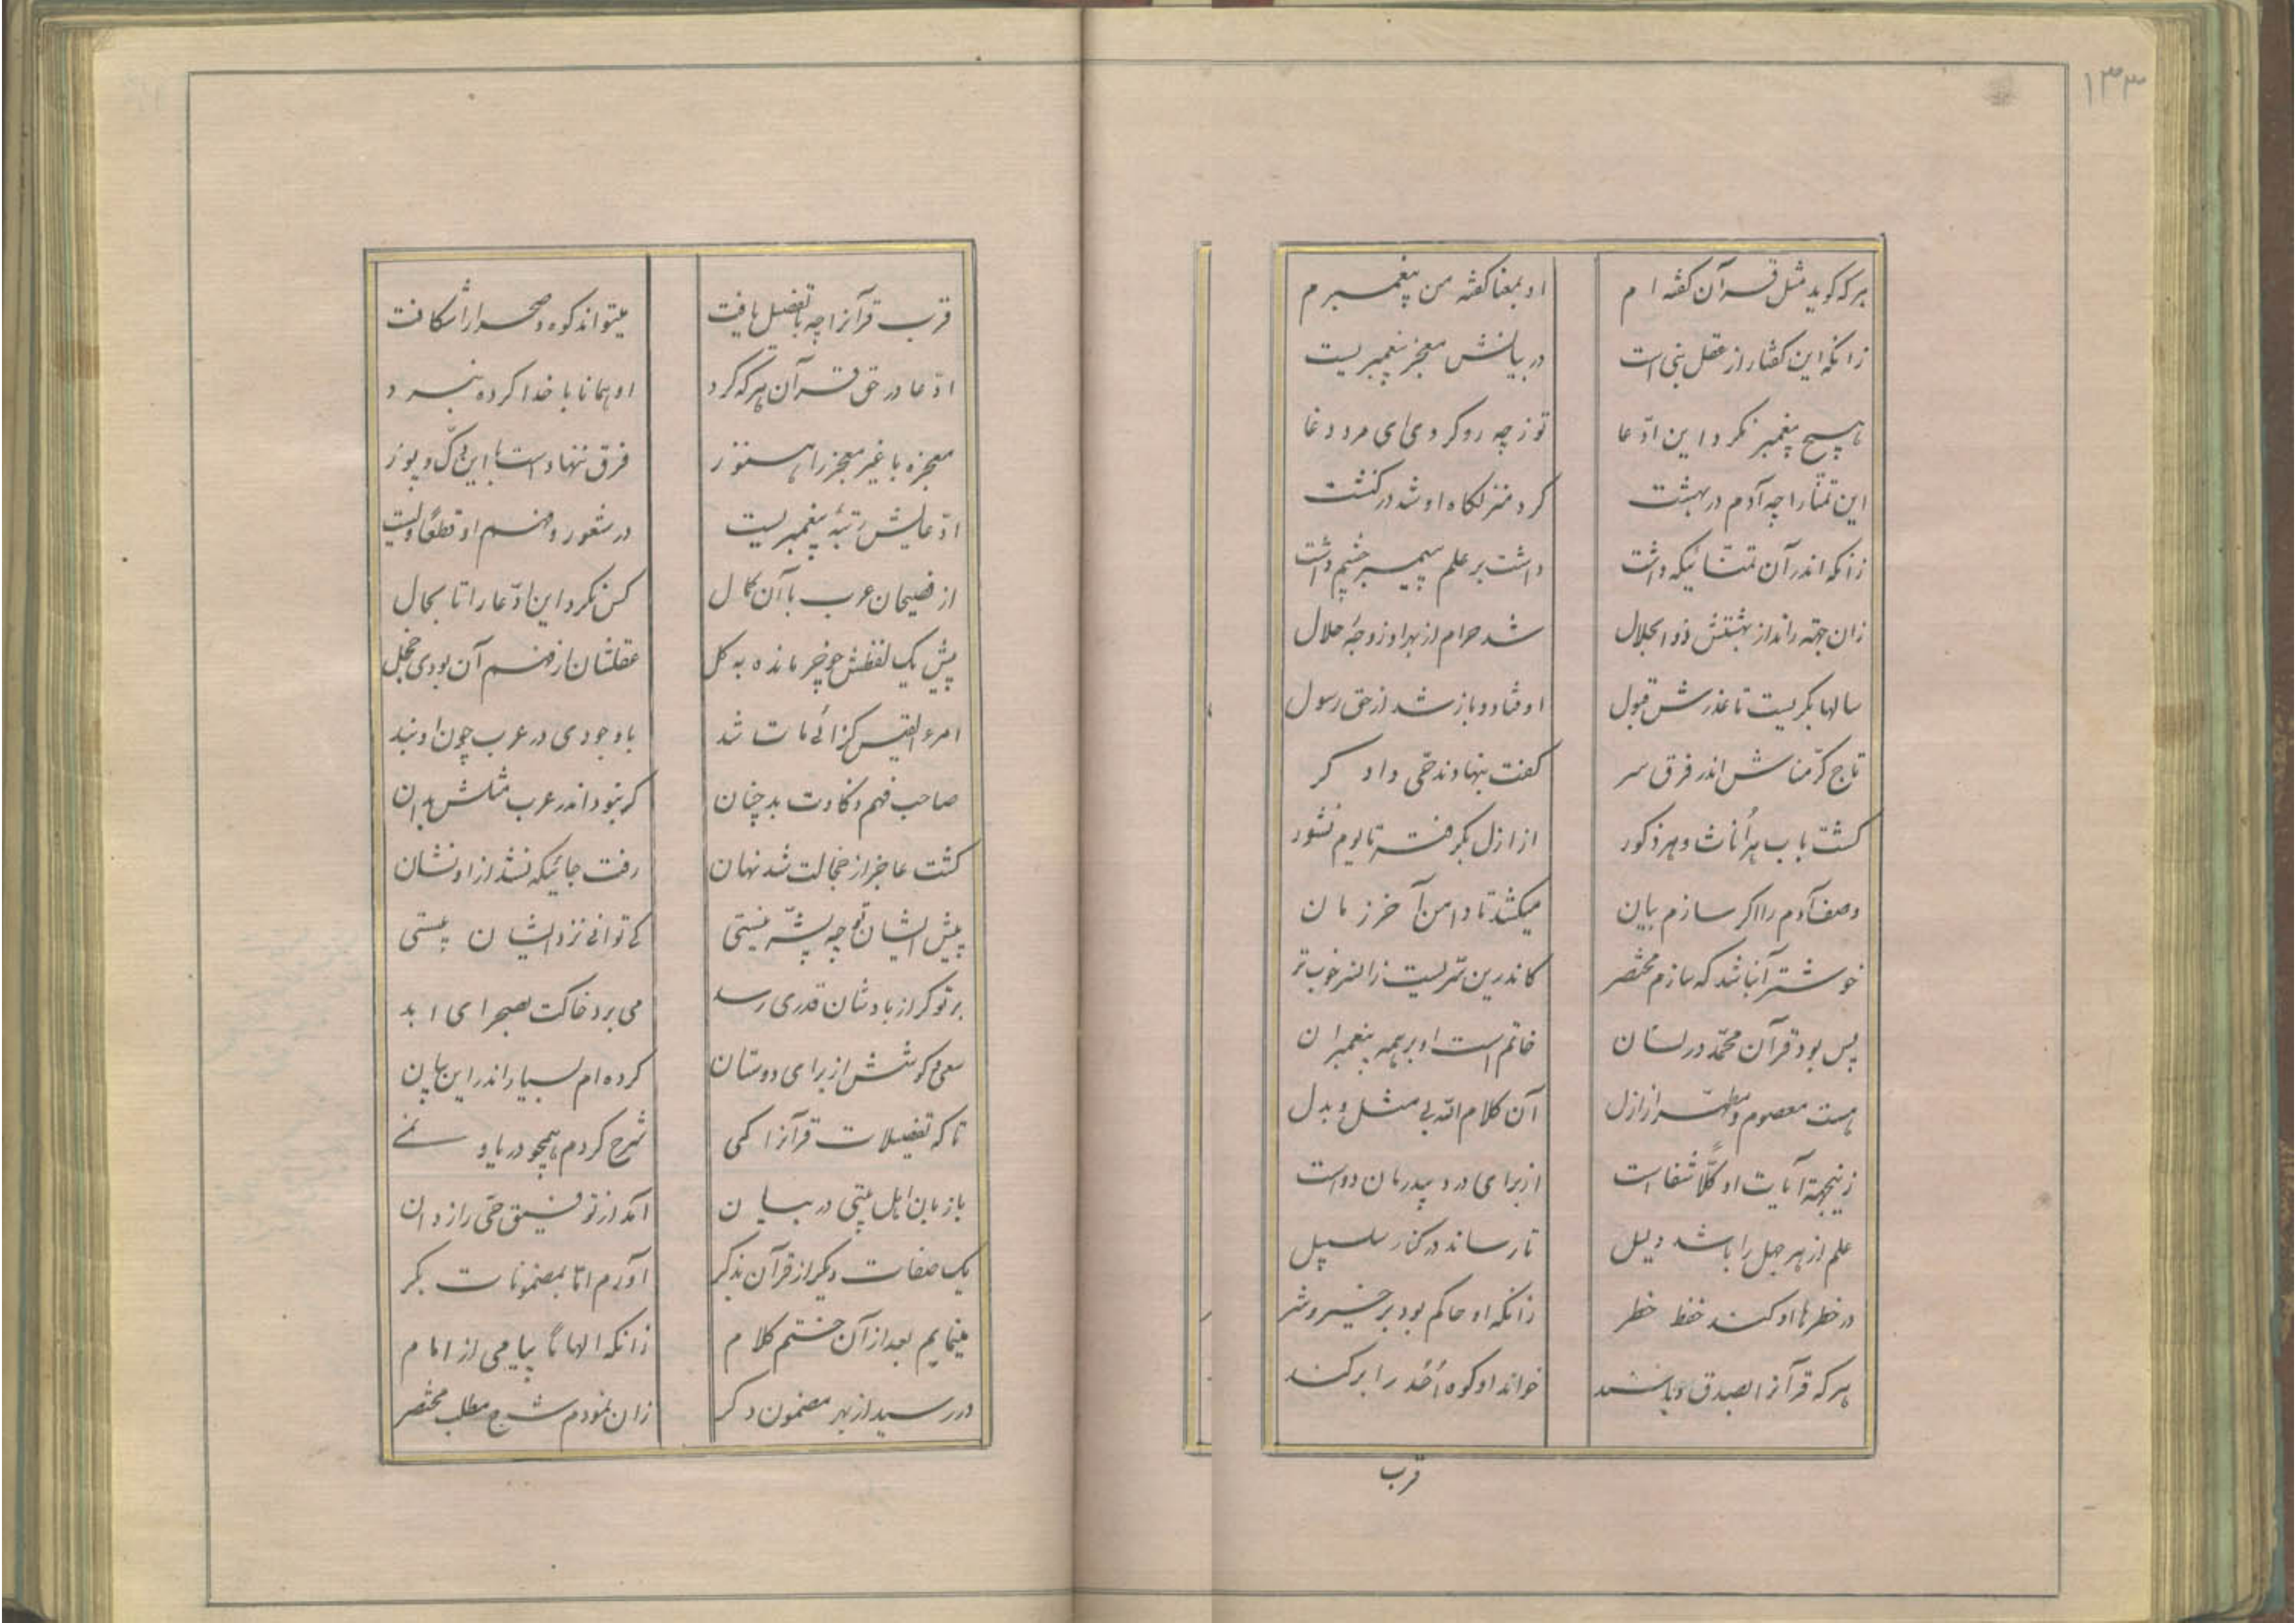 ۱۳۳
هرکه کوید مثل قرآن کفته ام
او بمعنا کفته من پیغمبرم
زانکه این کفتار از عقل نبی است
در بیانش معجز پیغمبریست
هیچ پیغمبر نکرد این ادّعا
تو ز چه رو کردی ای مرد دغا
این تمنّا را چه آدم در بهشت
کرد منزلکاه او شد در کنشت
زانکه اندر آن تمنّائیکه داشت
داشت بر علم پیمبر چشم داشت
زان جهته راند از بهشتش ذوالجلال
شد حرام از بهر او زوجهٔ حلال
سالها بکریست تا عذرش قبول
اوفتاد و باز شد از حق رسول
تاج کرّمناش اندر فرق سر
کفت بنهادند حق داد کر
کشت باب هر اُناث و هر ذکور
از ازل بکرفت تا یوم نشور
وصف آدم را اکر سازم بیان
میکشد تا دامن آخر زمان
خوشتر آنباشد که سازم مختصر
کاندرین سرّیست زانسر خوب تر
پس بود قرآن محمّد در لسان
خاتم است او بر همه پیغمبران
هست معصوم و مطهّر از ازل
آن کلام الله بی مثل و بدل
زینجهته آیات او کلّاً شفا است
از برای درد بیدرمان دواست
علم از هر جهل را باشد دلیل
تا رساند در کنار سلسبیل
در خطرها او کند حفظ خطر
زانکه او حاکم بود بر خیر و شر
هرکه قرآنرا بصدق و یا سند
خواند او کوه اُحُد را بر کند
قرب
قرب قرآنرا چه با تفضیل یافت
میتواند کوه و صحرا را شکافت
ادّعا در حق قرآن هرکه کرد
او همانا با خدا کرده نبرد
معجزه با غیر معجز را هنوز
فرق ننهاد است با این دکّ و پوز
ادّعایش رتبهٔ پیغمبریست
در شعور و فهم او قطعاً ولیست
از فصیحان عرب با آن کمال
کس نکرد این ادّعا را تا بحال
پیش یک لفظش چو خر مانده به کل
عقلشان از فهم آن بودی خجل
امرءالقیس کزائی مات شد
باوجودی در عرب چون او نبد
صاحب فهم و ذکاوت بد چنان
که نبود اندر عرب مثلش بدان
کشت عاجز از خجالت شد نهان
رفت جائیکه نشد از او نشان
پیش ایشان تو چه پشّه نیستی
کی توانی نزد ایشان بیستی
بر تو کر از بادشان قدری رسد
می برد خاکت بصحرای ابد
سعی و کوشش از برای دوستان
کرده ام بسیار اندر این بیان
تا که تفضیلات قرآنرا کمی
شرح کردم همچو دریا و نمی
با زبان اهل بیتی در بیان
آمد از توفیق حق رازدان
یک صفات دیکر از قرآن بذکر
آورم امّا بمضمونات بکر
مینمایم بعد از آن ختم کلام
زانکه الهاماً پیامی از امام
در رسید از بهر مضمون دکر
زان نمودم شرح مطلب مختصر